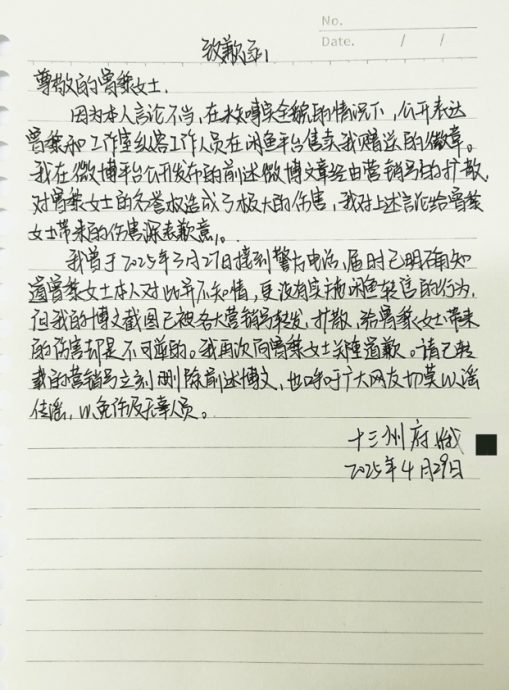 No.
Date. / /
致歉函
尊敬的曾黎女士.
因为本人言论不当,在未知事实全貌的情况下,公开表达
曾黎和工作室纵容工作人员在闲鱼平台售卖我赠送的徽章。
我在微博平台公开发布的前述微博文章经由营销号的扩散,
对曾黎女士的名誉权造成了极大的伤害,我对上述言论给曾黎
女士带来的伤害深表歉意。
我曾于2025年3月27日接到警方电话,届时已明确知
道曾黎女士本人对此并不知情,更没有实施闲鱼转售的行为,
但我的博文截图已被各大营销号转发、扩散,给曾黎女士带来
的伤害却是不可逆的。我再次向曾黎女士道歉。请已转
载的营销号立刻删除前述博文,也呼吁广大网友切莫以谣
传谣,以免伤及无辜人员。
十三州府
2025年4月29日